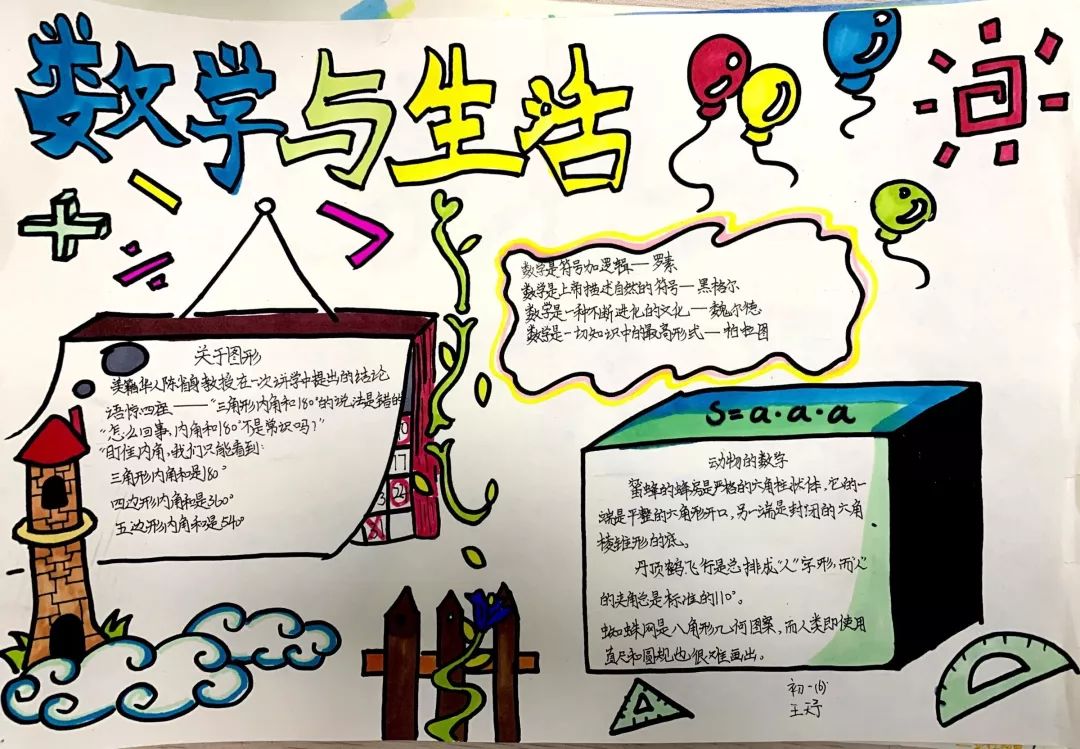 数学与生活
数学是符号加逻辑——罗素
数学是上帝描述自然的符号——黑格尔
数学是一种不断进化的文化——魏尔德
数学是一切知识中的最高形式——柏拉图
关于图形
美籍华人陈省身教授在一次讲学中提出的结论
语惊四座——"三角形内角和180°的说法是错的
"怎么回事,内角和180°不是常识吗?"
"盯住内角,我们只能看到:
三角形内角和是180°
四边形内角和是360°
五边形内角和是540°
17
24
S=a·a·a
动物的数学
蜜蜂的蜂房是严格的六角柱状体,它的一
端是平整的六角形开口,另一端是封闭的六角
棱锥形的底。
丹顶鹤飞行是总排成"人"字形,而"人"
的夹角总是标准的110°。
蜘蛛网是八角形几何图案,而人类即使用
直尺和圆规也很难画出。
初一(6)